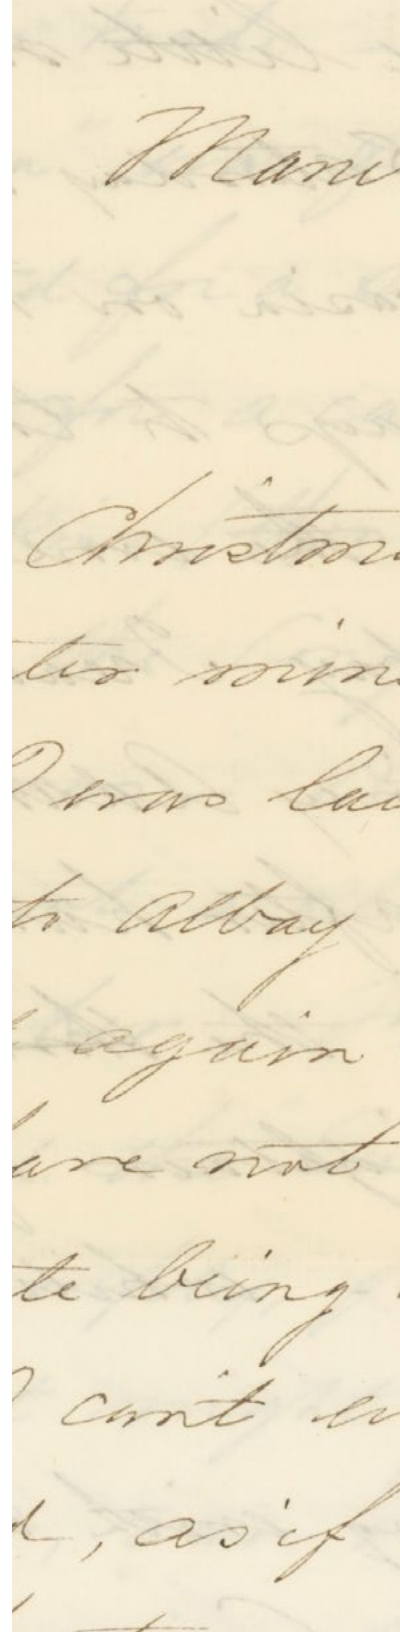 Mani
Christma
ter min
I was la
to Albay
again
are not
te being
I can't e
d, as if